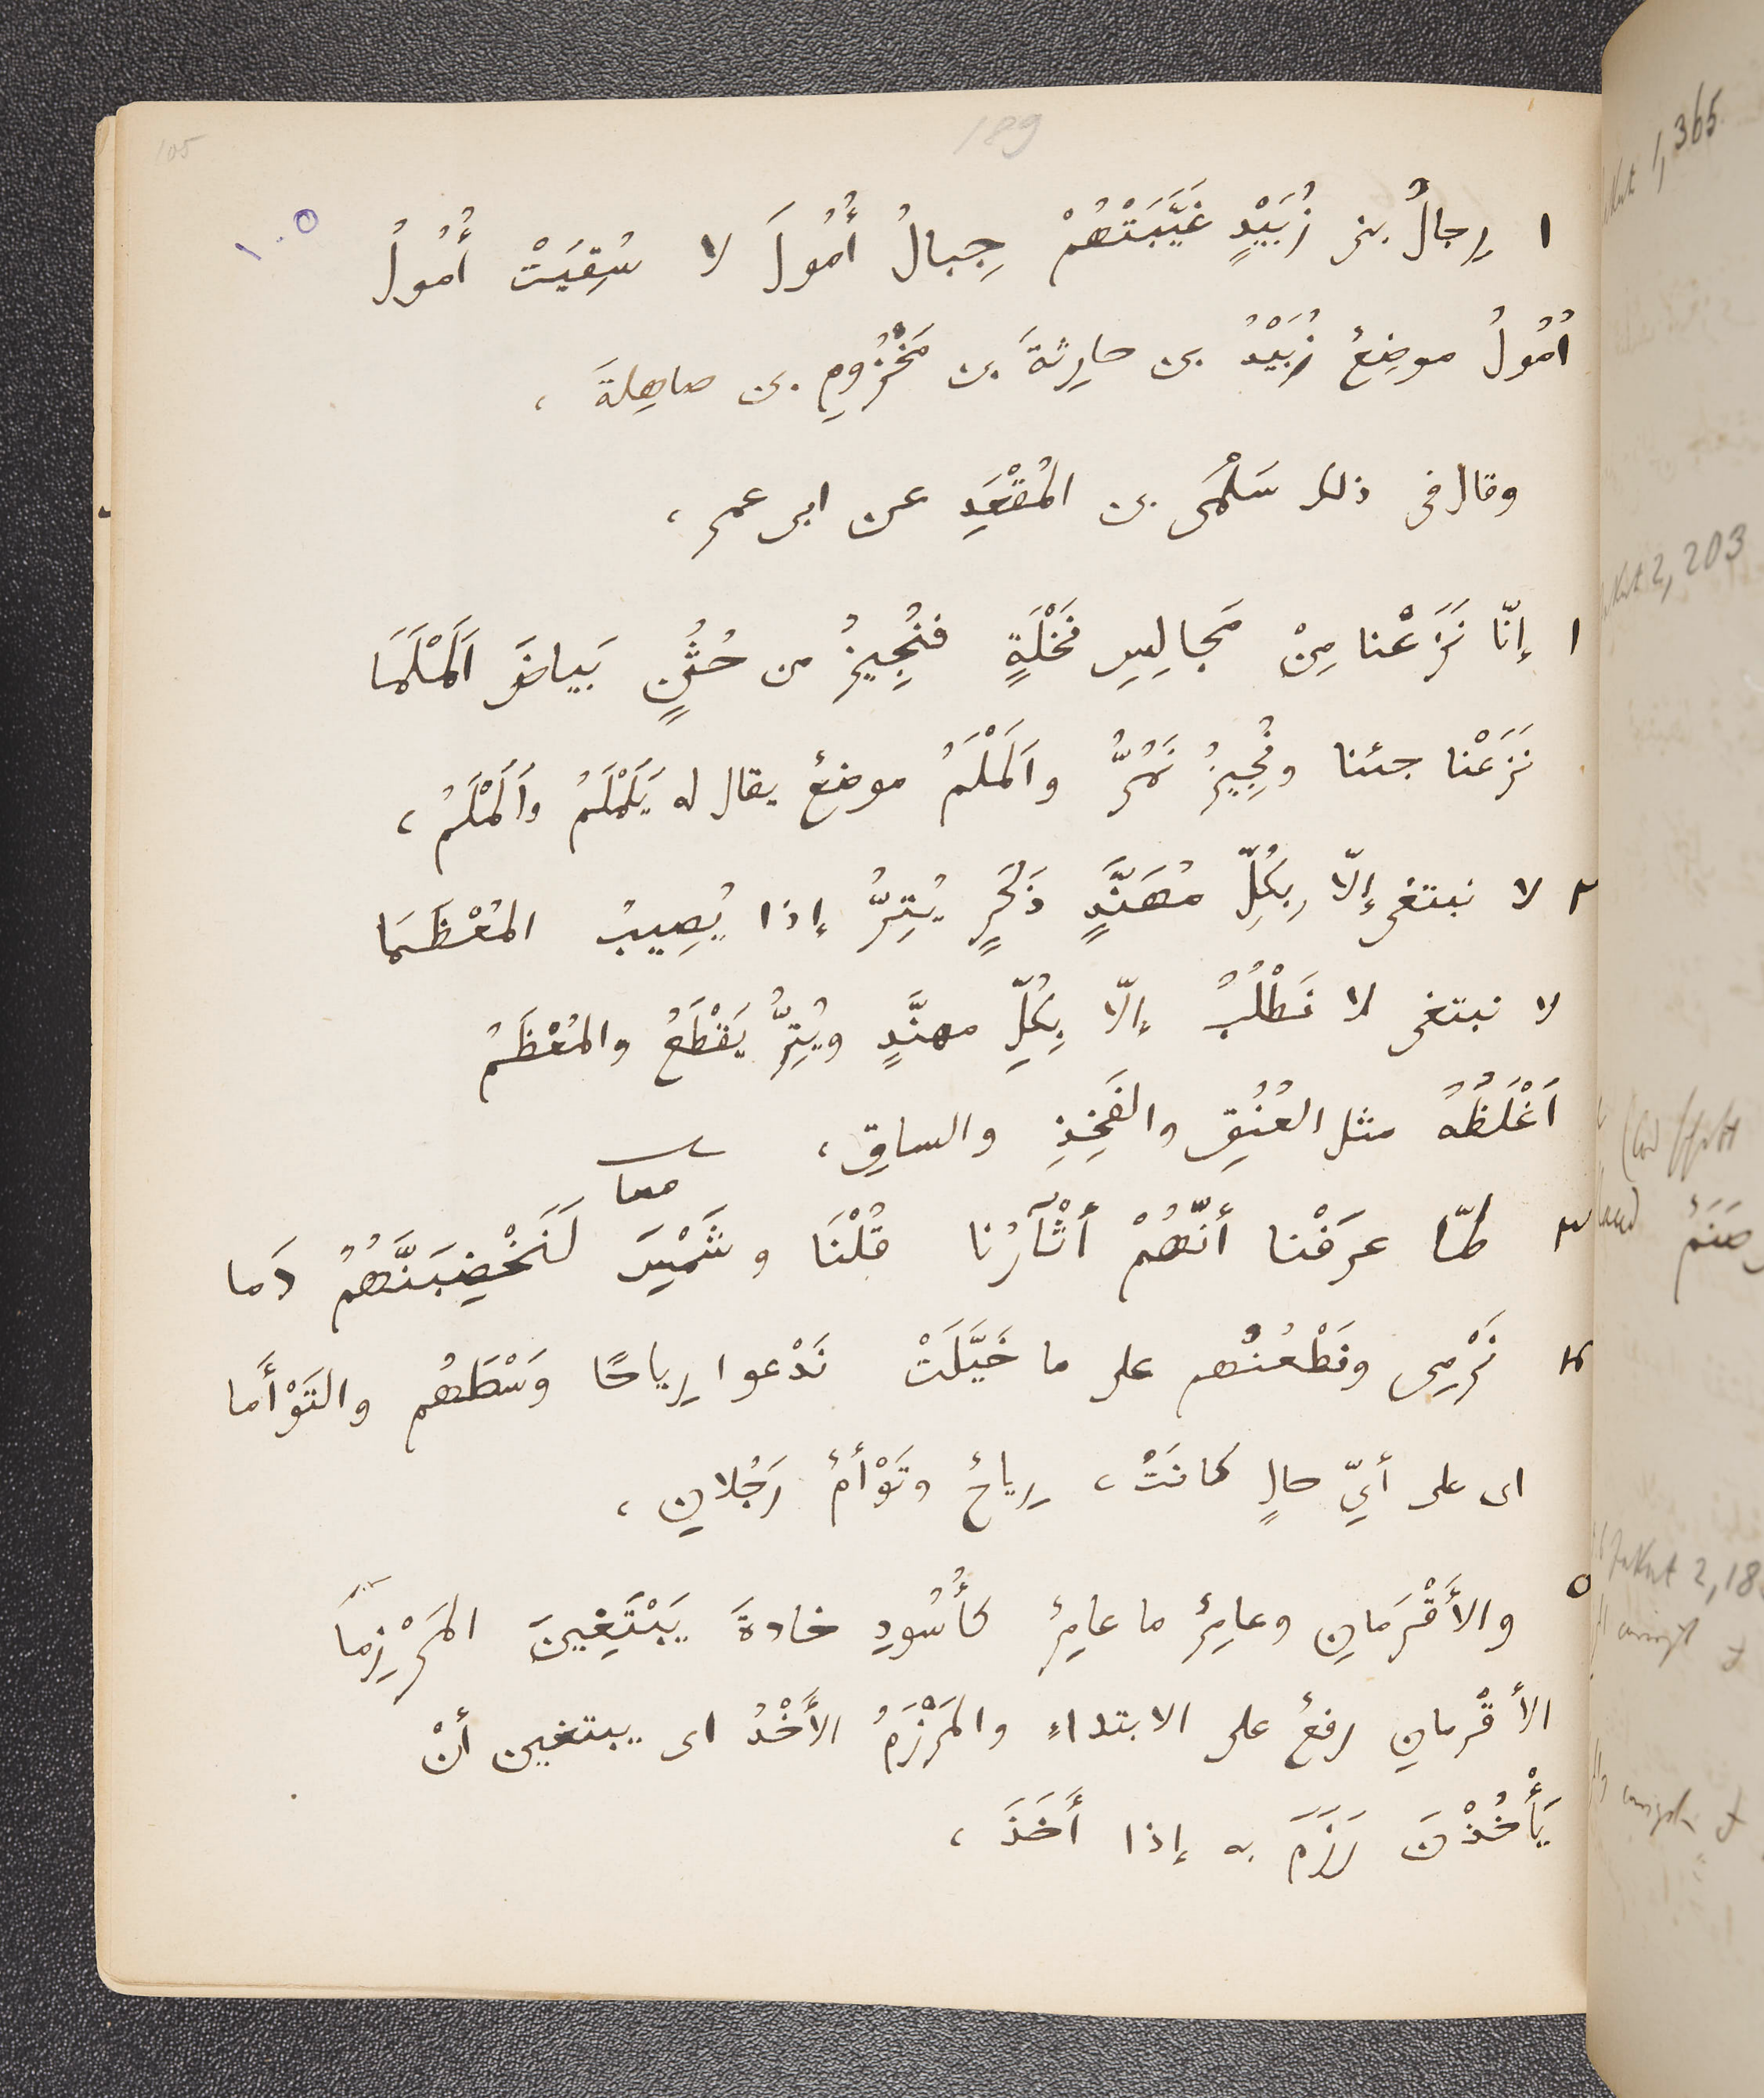 105
189
١٠٥
١ رِجالُ بنى زُبَيْدٍ غَيَّبَتْهُمْ جِبالُ أُمُولَ لا سُقِيَتْ أُمُولُ
اُمُولُ موضِعٌ زُبَيْدُ بن حارِثةَ بن مَخْزُومِ بن صاهِلةَ ،
وقال فى ذلك سَلْمَى بن المُقْعَدِ عن ابى عمرٍ ،
١ إنّا نَزَعْنا مِنْ مَجالِسِ نَخْلَةٍ فنُجِيزُ من حُثُنٍ بَياضَ اَلَمْلَمَا
نَزَعْنا جئنا ونُجِيزُ نَمُرُّ واَلَمْلَمُ موضِعٌ يقال له يَلَمْلَمُ واَلَمْلَمُ ،
٢ لا نبتغى إلّا بِكُلِّ مُهَنَّدٍ ذَكَرٍ يُتِرُّ إذا يُصِيبُ المُعْظَمَا
لا نبتغى لا نَطْلُبُ إلّا بِكُلِّ مهنَّدٍ ويُتِرُّ يَقْطَعُ والمُعْظَمُ
اَغْلَظُهُ مثل العُنُقِ والفَخِذِ والساقِ ،
معا
٣ لمّا عرَفْنا أنّهُمْ أثْآرُنا قُلْنَا وشَمْسَ لَنَخْضِبَنَّهُمُ دَما
٤ نَرْمِى ونَطْعُنُهم على ما خَيَّلَتْ نَدْعوا رِياحًا وَسْطَهُم والتَوْأَما
اى على أيّ حالٍ كانَتْ ، رِياحٌ وتَوْأمٌ رَجُلانِ ،
٥ والأَقْرَمانِ وعامِرٌ ما عامِرٌ كأُسُودِ خادةَ يَبْتَغِينَ المَرْزِمَا
الأقْرمانِ رفعٌ على الابتداءِ والمَرْزَمُ الأَخْذُ اى يبتغين أنْ
يَأْخُذْنَ رَزَمَ به إذا أَخَذَ ،
1,365
2,203
صَنَمٌ
2,18